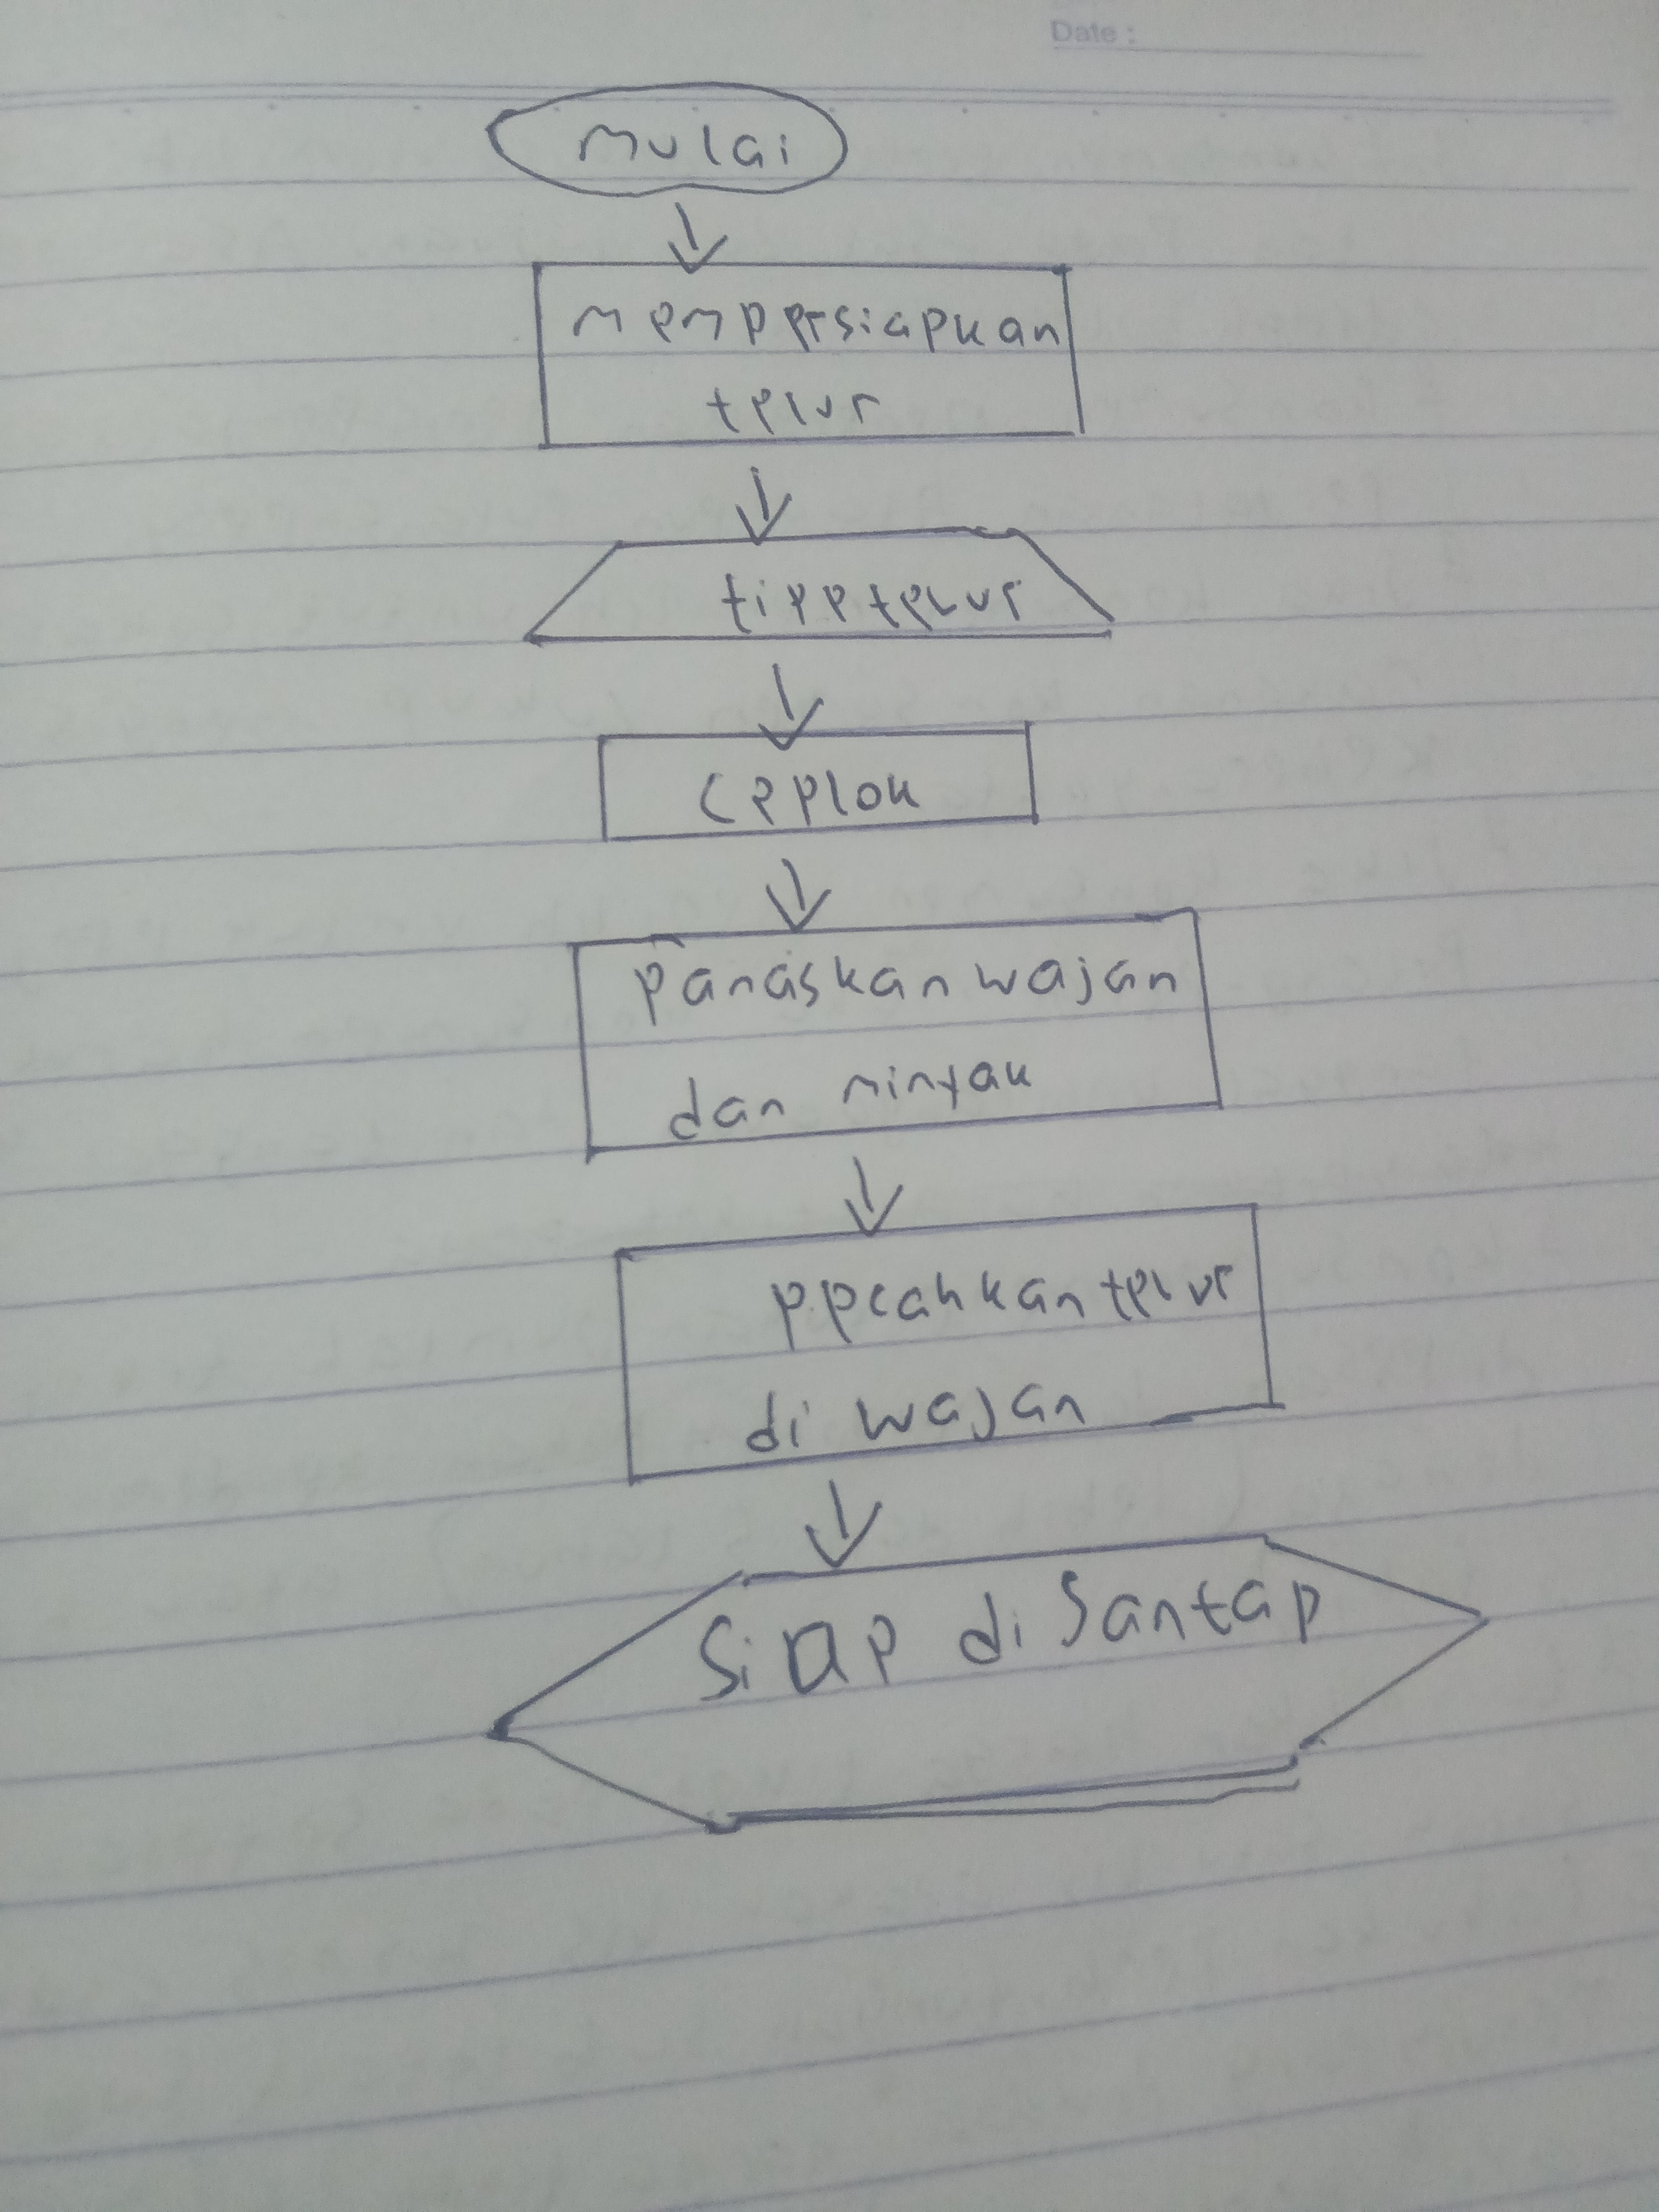 Date :
mulai
mempersiapkan
telur
tipe telur
ceplok
panaskan wajan
dan minyak
pecahkan telur
di wajan
Siap di Santap